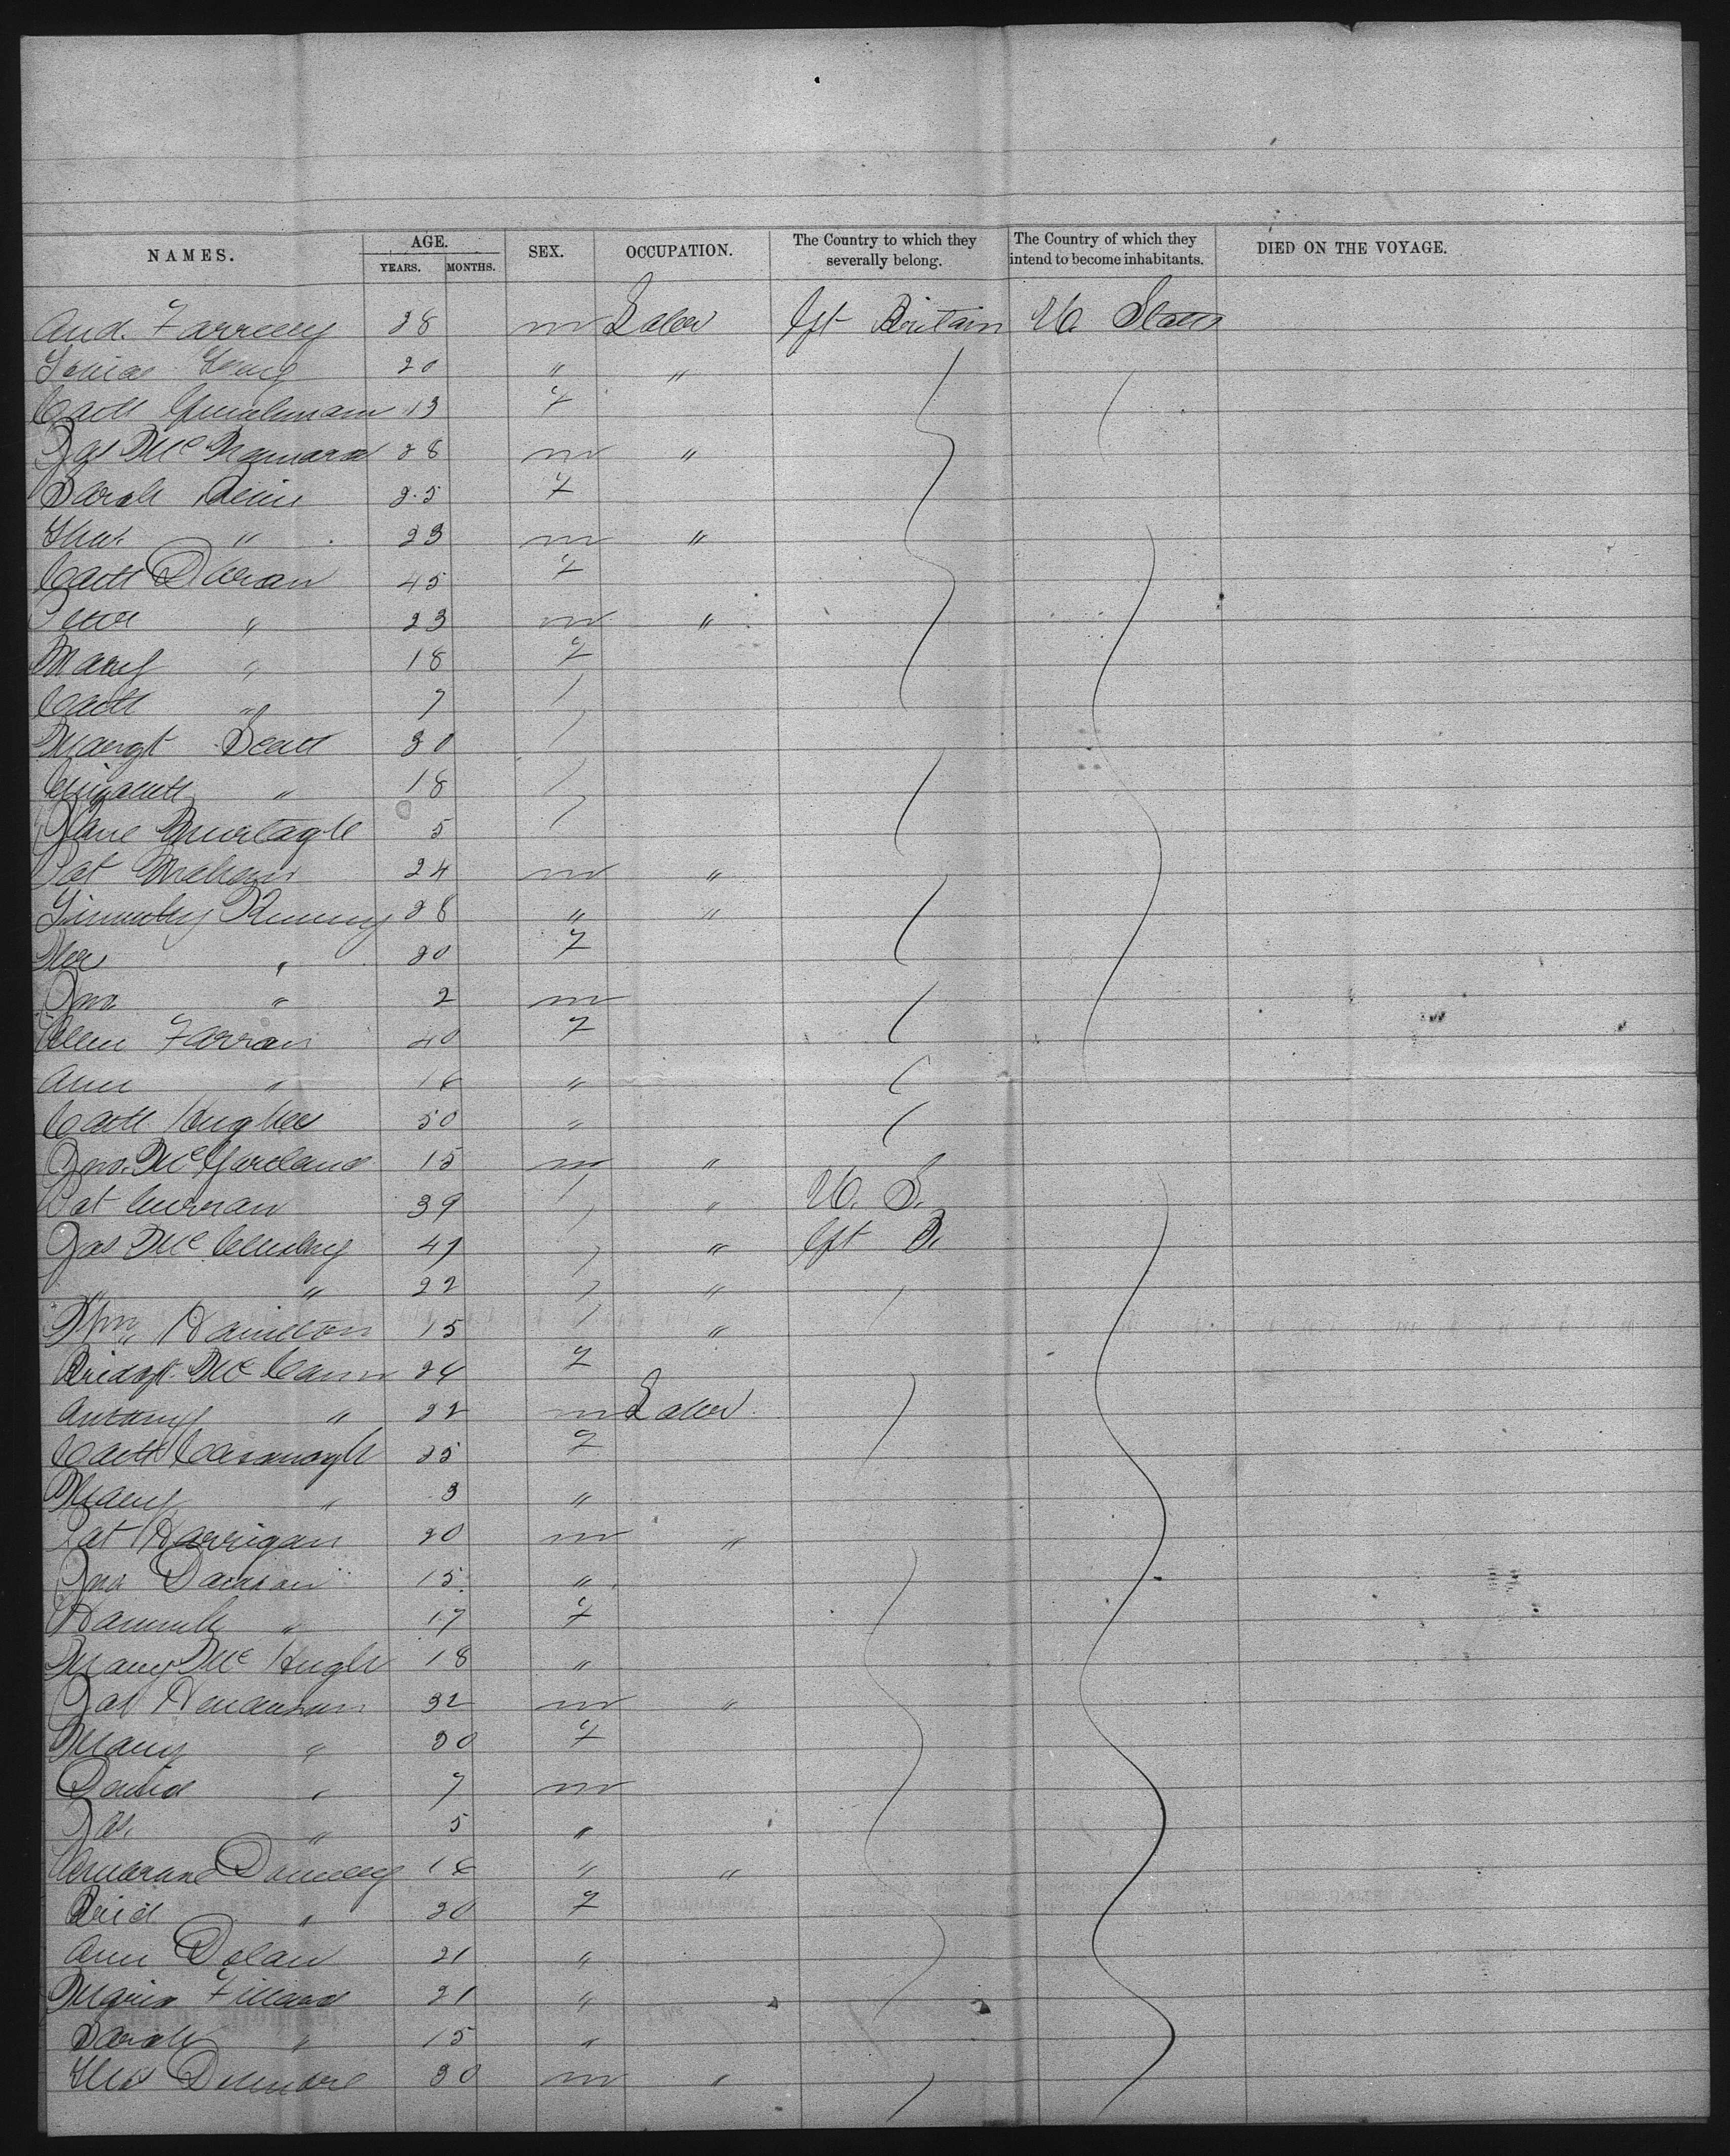 NAMES. AGE. YEARS. MONTHS. SEX. OCCUPATION. The Country to which they severally belong. The Country of which they intend to become inhabitants. DIED ON THE VOYAGE.
And. Farrelly 28 m Labor Gt Britain U. States
20 " "
Cath 13 f
Jas McNamara 28 m "
Sarah 25 f
Thos " 23 m "
Cath Doran 45 f
Peter " 23 m "
Mary " 18 f
Cath " 7
Margt Scott 30
Elizabeth " 18
Jane Murtagh 5
Pat Mahon 24 m "
Timothy 28 " "
" 20 f
Jno " 2 m
Ellen Farran 40 f
Ann " 16 "
Cath Hughes 50 "
Jno. McGarland 15 m "
Pat Curran 39 " U. S.
Jas McCluskey 47 " Gt B.
" " 22 "
Wm Hamilton 15 "
Bridgt McCann 24 f
Antony " 22 m Labor
Cath Cavanagh 25 f
Mary " 3 "
Pat Harrigan 20 m "
Jno Dawson 15 "
Hannah " 17 f
Mary McHugh 18 "
Jas Henderson 32 m "
Mary " 30 f
David " 7 m
Jas. " 5 "
16 " "
Brid " 20 f
Ann Dolan 21 "
Maria 21 "
Sarah " 15 "
Thos 30 m "